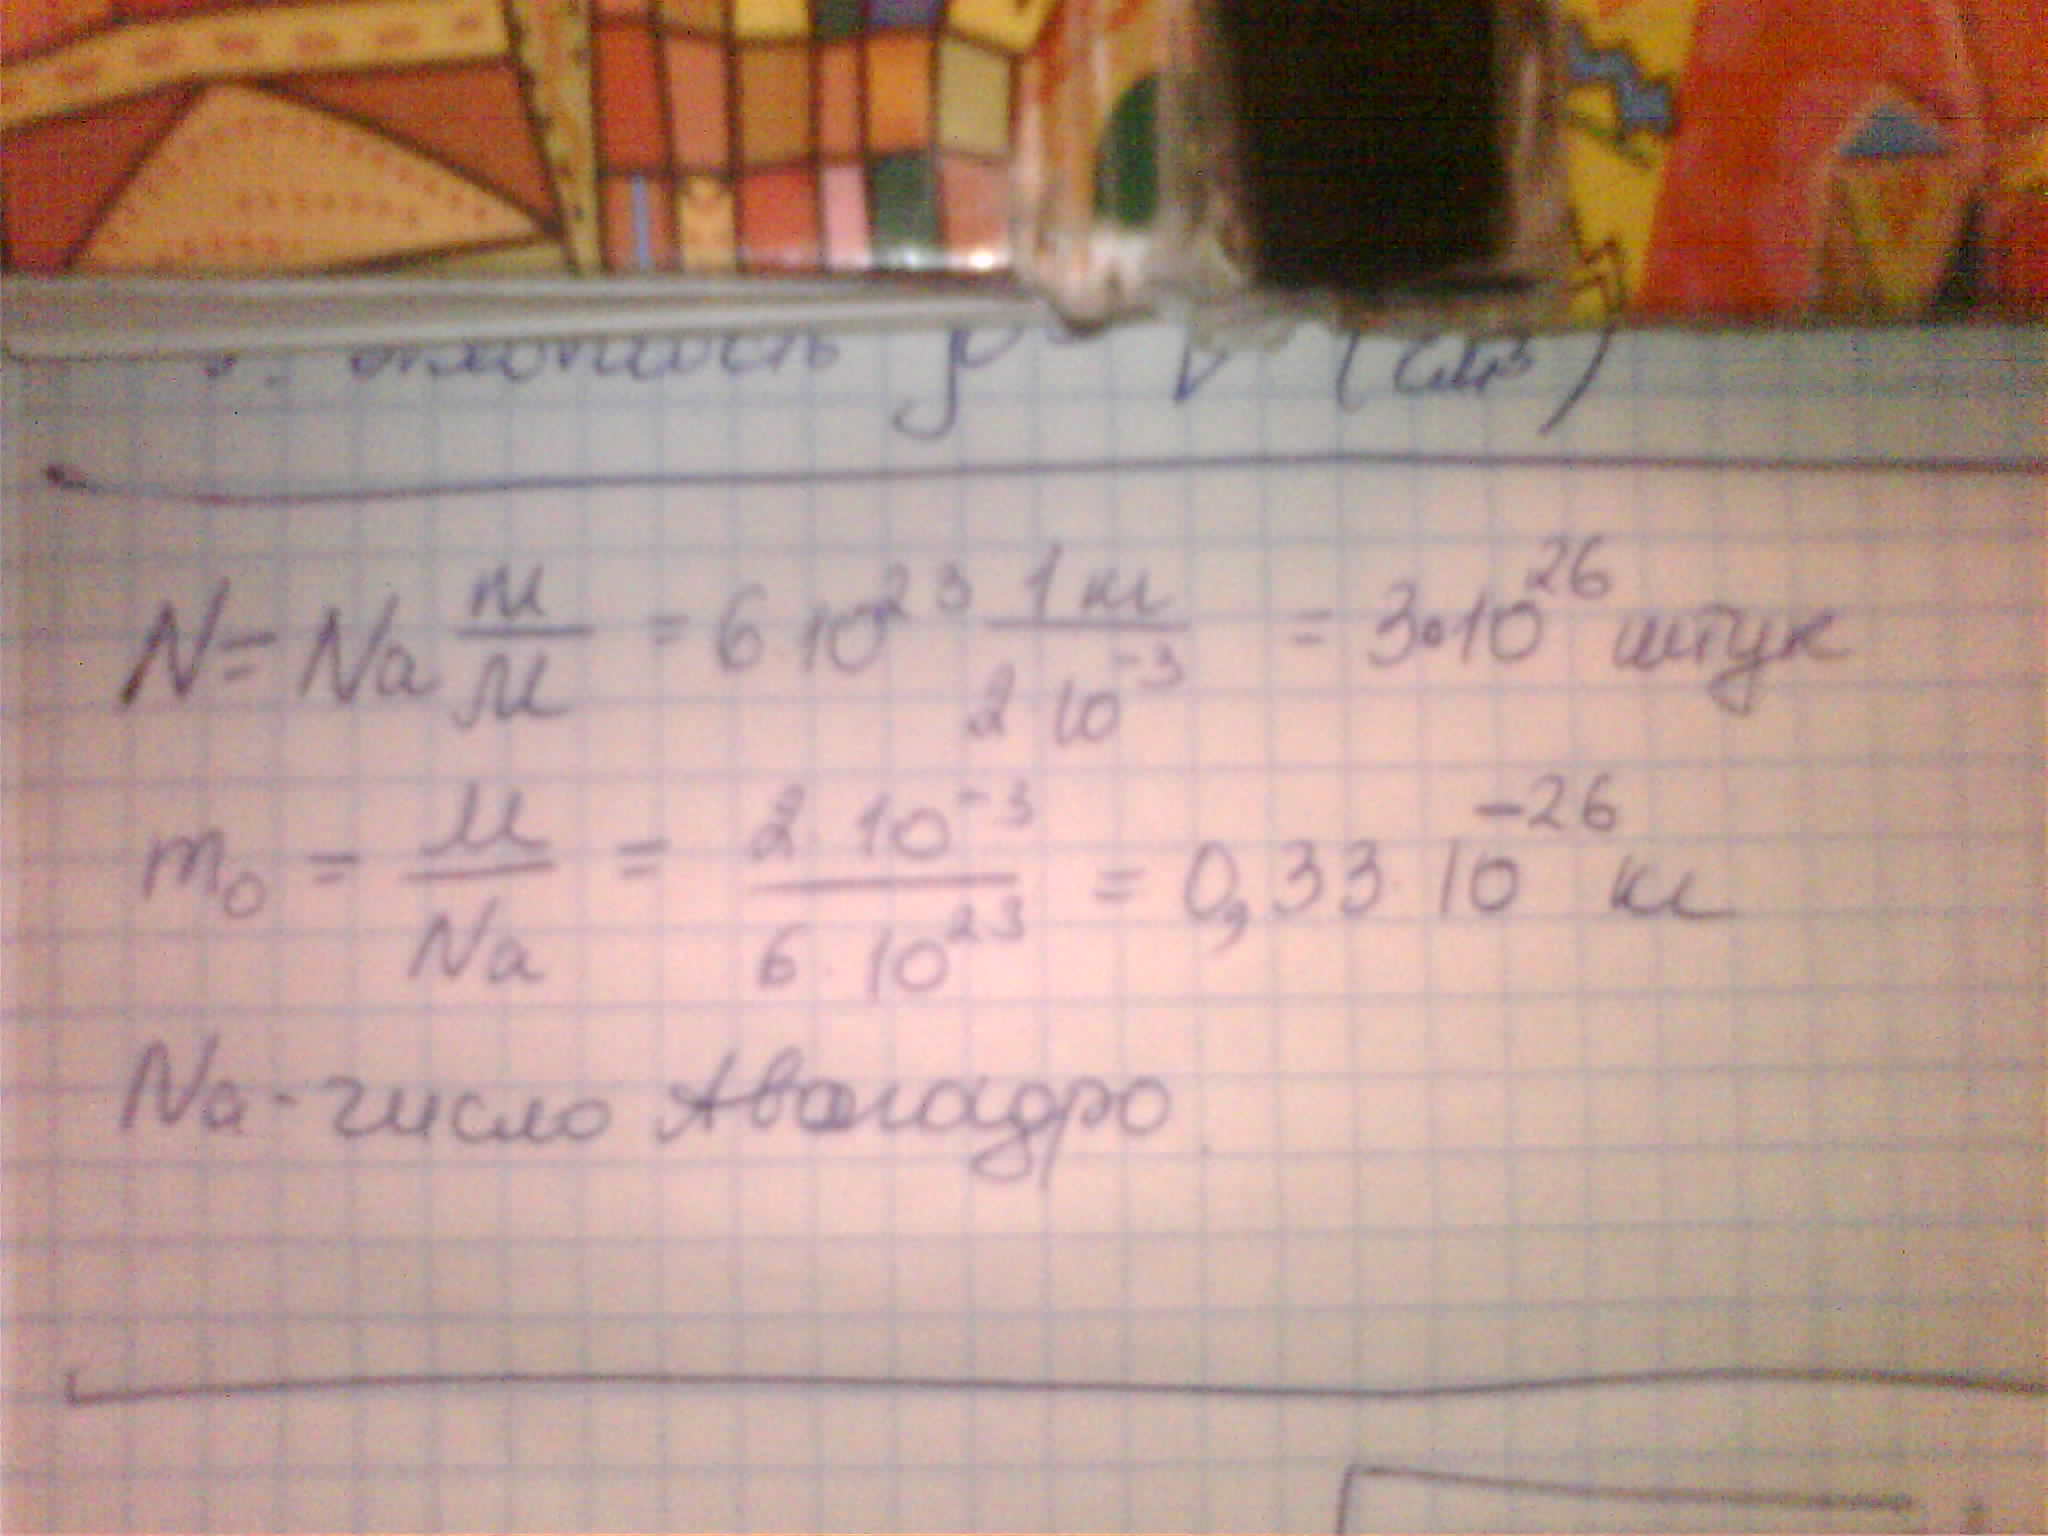 ρ = V (см³)
N = Na m/μ = 6 10²³ 1 кг/2 10⁻³ = 3•10²⁶ штук
m₀ = μ/Na = 2 · 10⁻³/6 · 10²³ = 0,33 10⁻²⁶ кг
Na - число Авогадро